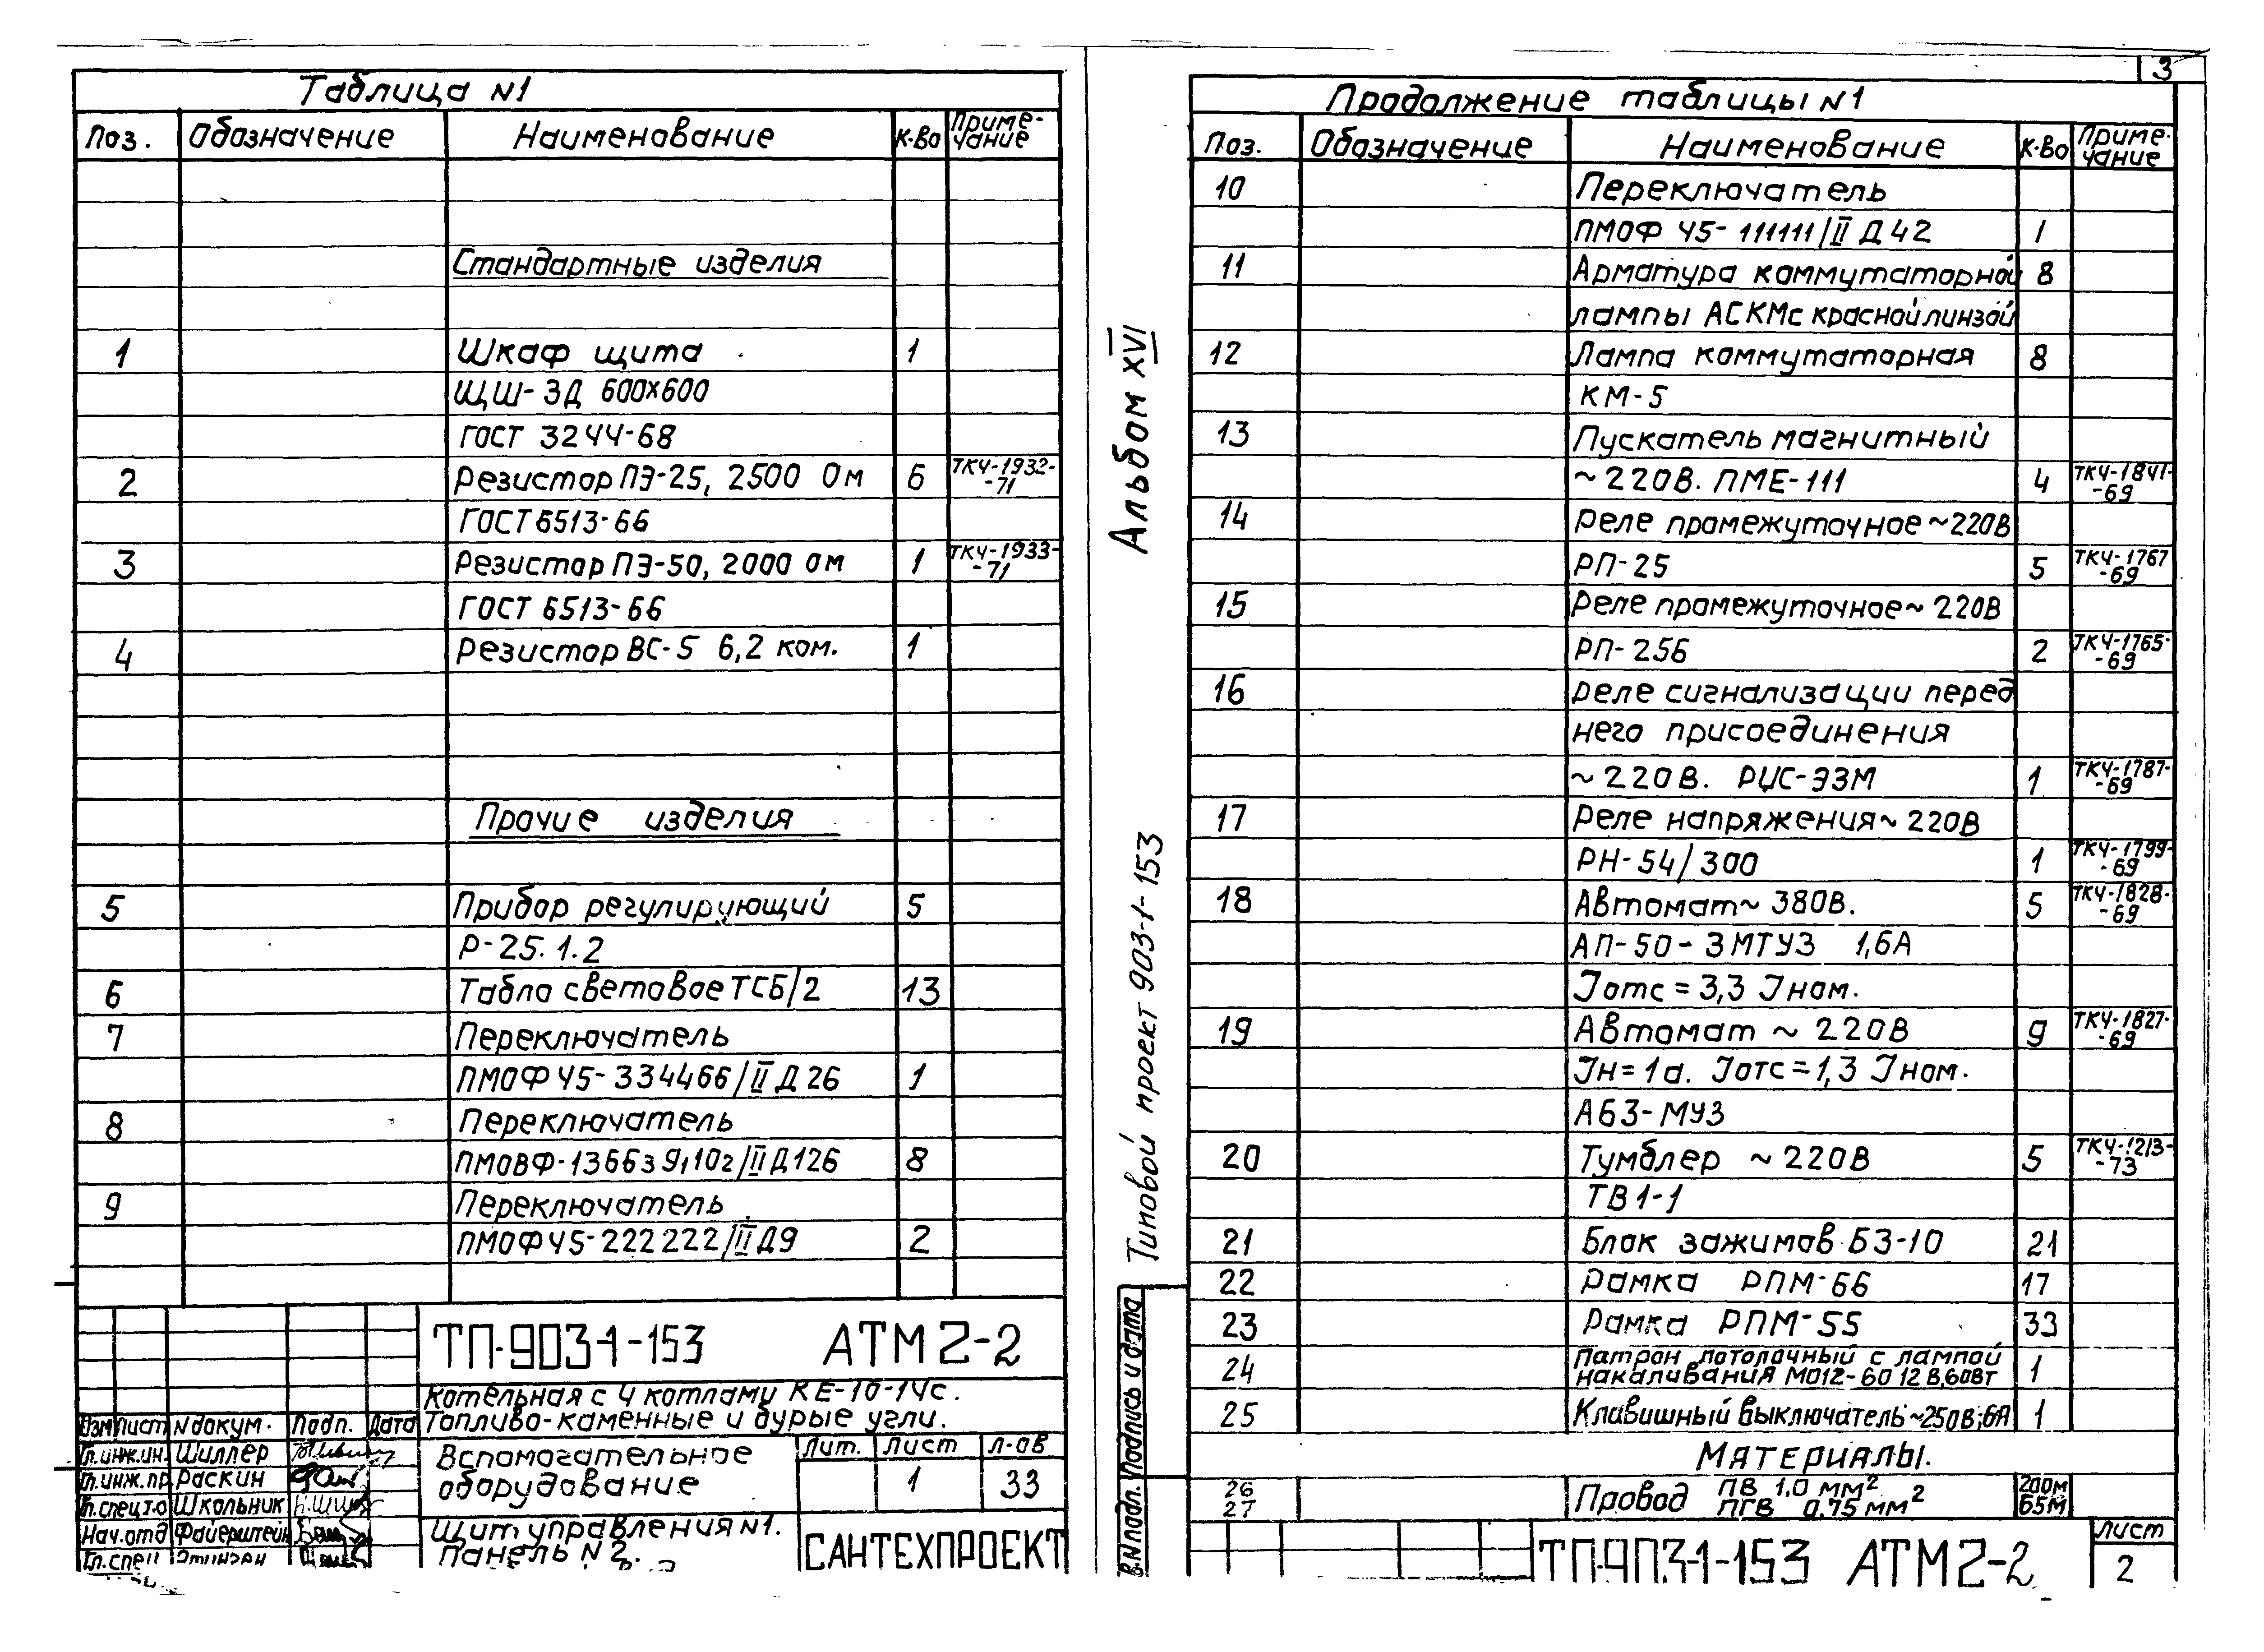 3
Таблица N1
Поз. Обозначение Наименование К-во Приме-
чание
Стандартные изделия
1 Шкаф щита 1
ЩШ-ЗД 600х600
ГОСТ 3244-68
2 Резистор ПЭ-25, 2500 Ом 6 ТКЧ-1932-
-71
ГОСТ 6513-66
3 Резистор ПЭ-50, 2000 Ом 1 ТКЧ-1933-
-71
ГОСТ 6513-66
4 Резистор ВС-5 6,2 ком. 1
Прочие изделия
5 Прибор регулирующий 5
Р-25.1.2
6 Табло световое ТСБ/2 13
7 Переключатель
ПМОФ45-334466/II Д26 1
8 Переключатель
ПМОВФ-1366з9,10г/II Д126 8
9 Переключатель
ПМОФ45-222222/II Д9 2
ТП-903-1-153 АТМ2-2
Котельная с 4 котлами КЕ-10-14с.
Топливо-каменные и бурые угли.
Изм Лист N докум. Подп. Дата
Гл.инж.ин. Шиллер
Гл.инж.пр Раскин
Гл.спец.т.о Школьник
Нач.отд Файерштейн
Гл.спец
Вспомогательное
оборудование
Лит. Лист Л-ов
1 33
Щит управления N1.
Панель N2.
САНТЕХПРОЕКТ
Альбом XVI
Типовой проект 903-1-153
Подпись и дата
N подл.
Продолжение таблицы N1
Поз. Обозначение Наименование К-во Приме-
чание
10 Переключатель
ПМОФ 45-111111/II Д42 1
11 Арматура коммутаторной 8
лампы АСКМ с красной линзой
12 Лампа коммутаторная 8
КМ-5
13 Пускатель магнитный
~220В. ПМЕ-111 4 ТКЧ-1841-
-69
14 Реле промежуточное ~220В
РП-25 5 ТКЧ-1767
-69
15 Реле промежуточное ~220В
РП-256 2 ТКЧ-1765-
-69
16 Реле сигнализации перед
него присоединения
~220В. РИС-ЭЗМ 1 ТКЧ-1787-
-69
17 Реле напряжения ~220В
РН-54/300 1 ТКЧ-1799-
-69
18 Автомат ~380В. 5 ТКЧ-1828-
-69
АП-50-3МТУЗ 1,6А
Iотс=3,3 Iном.
19 Автомат ~220В 9 ТКЧ-1827-
-69
Iн=1а. Iотс=1,3 Iном.
А63-МУЗ
20 Тумблер ~220В 5 ТКЧ-1213-
-73
ТВ1-1
21 Блок зажимов БЗ-10 21
22 Рамка РПМ-66 17
23 Рамка РПМ-55 33
24 Патрон потолочный с лампой
накаливания МО12-60 12В,60Вт 1
25 Клавишный выключатель ~250В;6А 1
МАТЕРИАЛЫ.
26 Провод ПВ 1,0 мм2 200м
27 ПГВ 0,75 мм2 65м
ТП-903-1-153 АТМ2-2
Лист
2